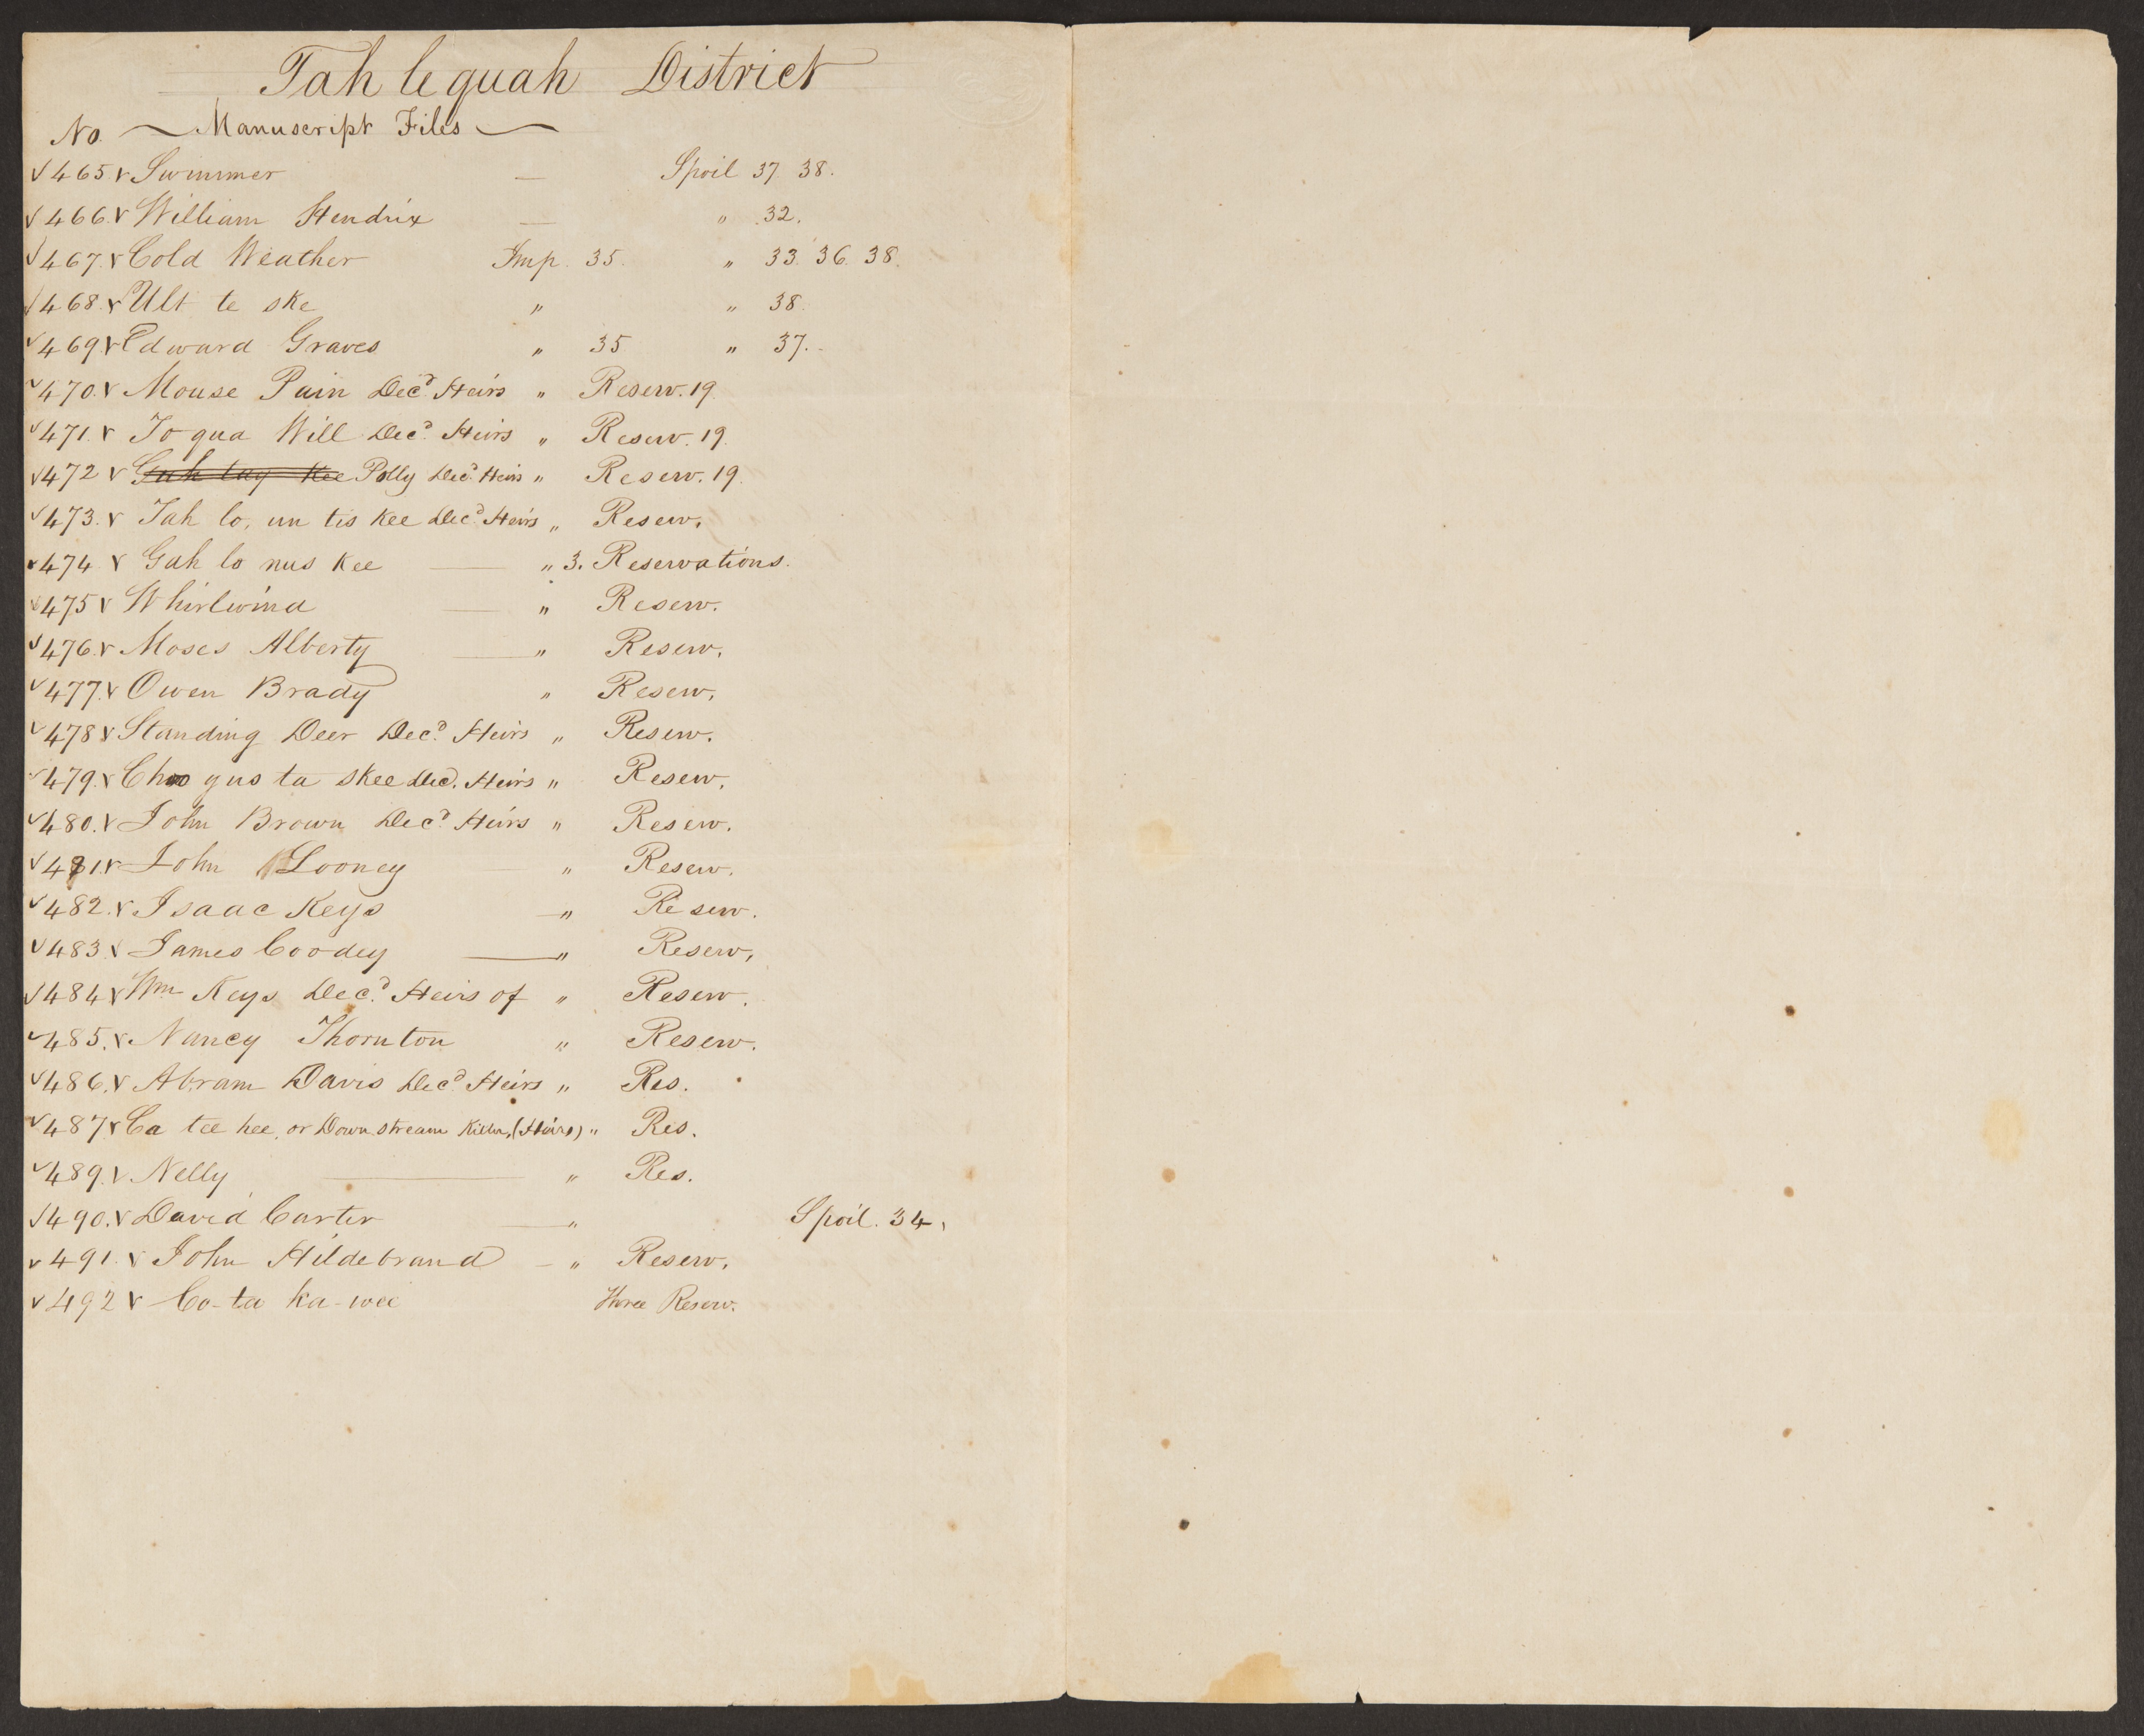 Tah le quah District
No. — Manuscript Files —
√ 465 v Swimmer — Spoil 37 38.
√ 466. v William Hendrix — " 32.
√ 467. v Cold Weather Imp. 35. " 33. 36. 38.
√ 468. v Ult te ske " " 38.
√ 469 v Edward Graves " 35 " 37.
√ 470. v Mouse Pain Decd. Heirs " Reserv. 19.
√ 471. v To qua Will Decd. Heirs " Reserv. 19.
√ 472 v Guh tay Kee Polly Decd. Heirs " Reserv. 19.
√ 473. v Tah lo, un tis Kee Decd. Heirs " Reserv.
√ 474 v Gah lo nus Kee — " 3. Reservations.
√ 475 v Whirlwind — " Reserv.
√ 476. v Moses Alberty — " Reserv.
√ 477. v Owen Brady " Reserv.
√ 478 v Standing Deer Decd. Heirs " Reserv.
√ 479. v Choo yus ta skee Decd. Heirs " Reserv.
√ 480. v John Brown Decd. Heirs " Reserv.
√ 481. v John Looney " Reserv.
√ 482. v Isaac Keys — " Reserv.
√ 483. v James Coodey — " Reserv.
√ 484 v Wm Keys Decd. Heirs of " Reserv.
√ 485. v Nancy Thornton " Reserv.
√ 486. v Abram Davis Decd Heirs " Res.
√ 487 v Ca tee hee, or Down stream Killer, (Heirs) " Res.
√ 489. v Nelly — " Res.
√ 490. v David Carter — " Spoil. 34.
√ 491. v John Hildebrand — " Reserv.
√ 492 v Co-ta ka-wee Three Reserv.